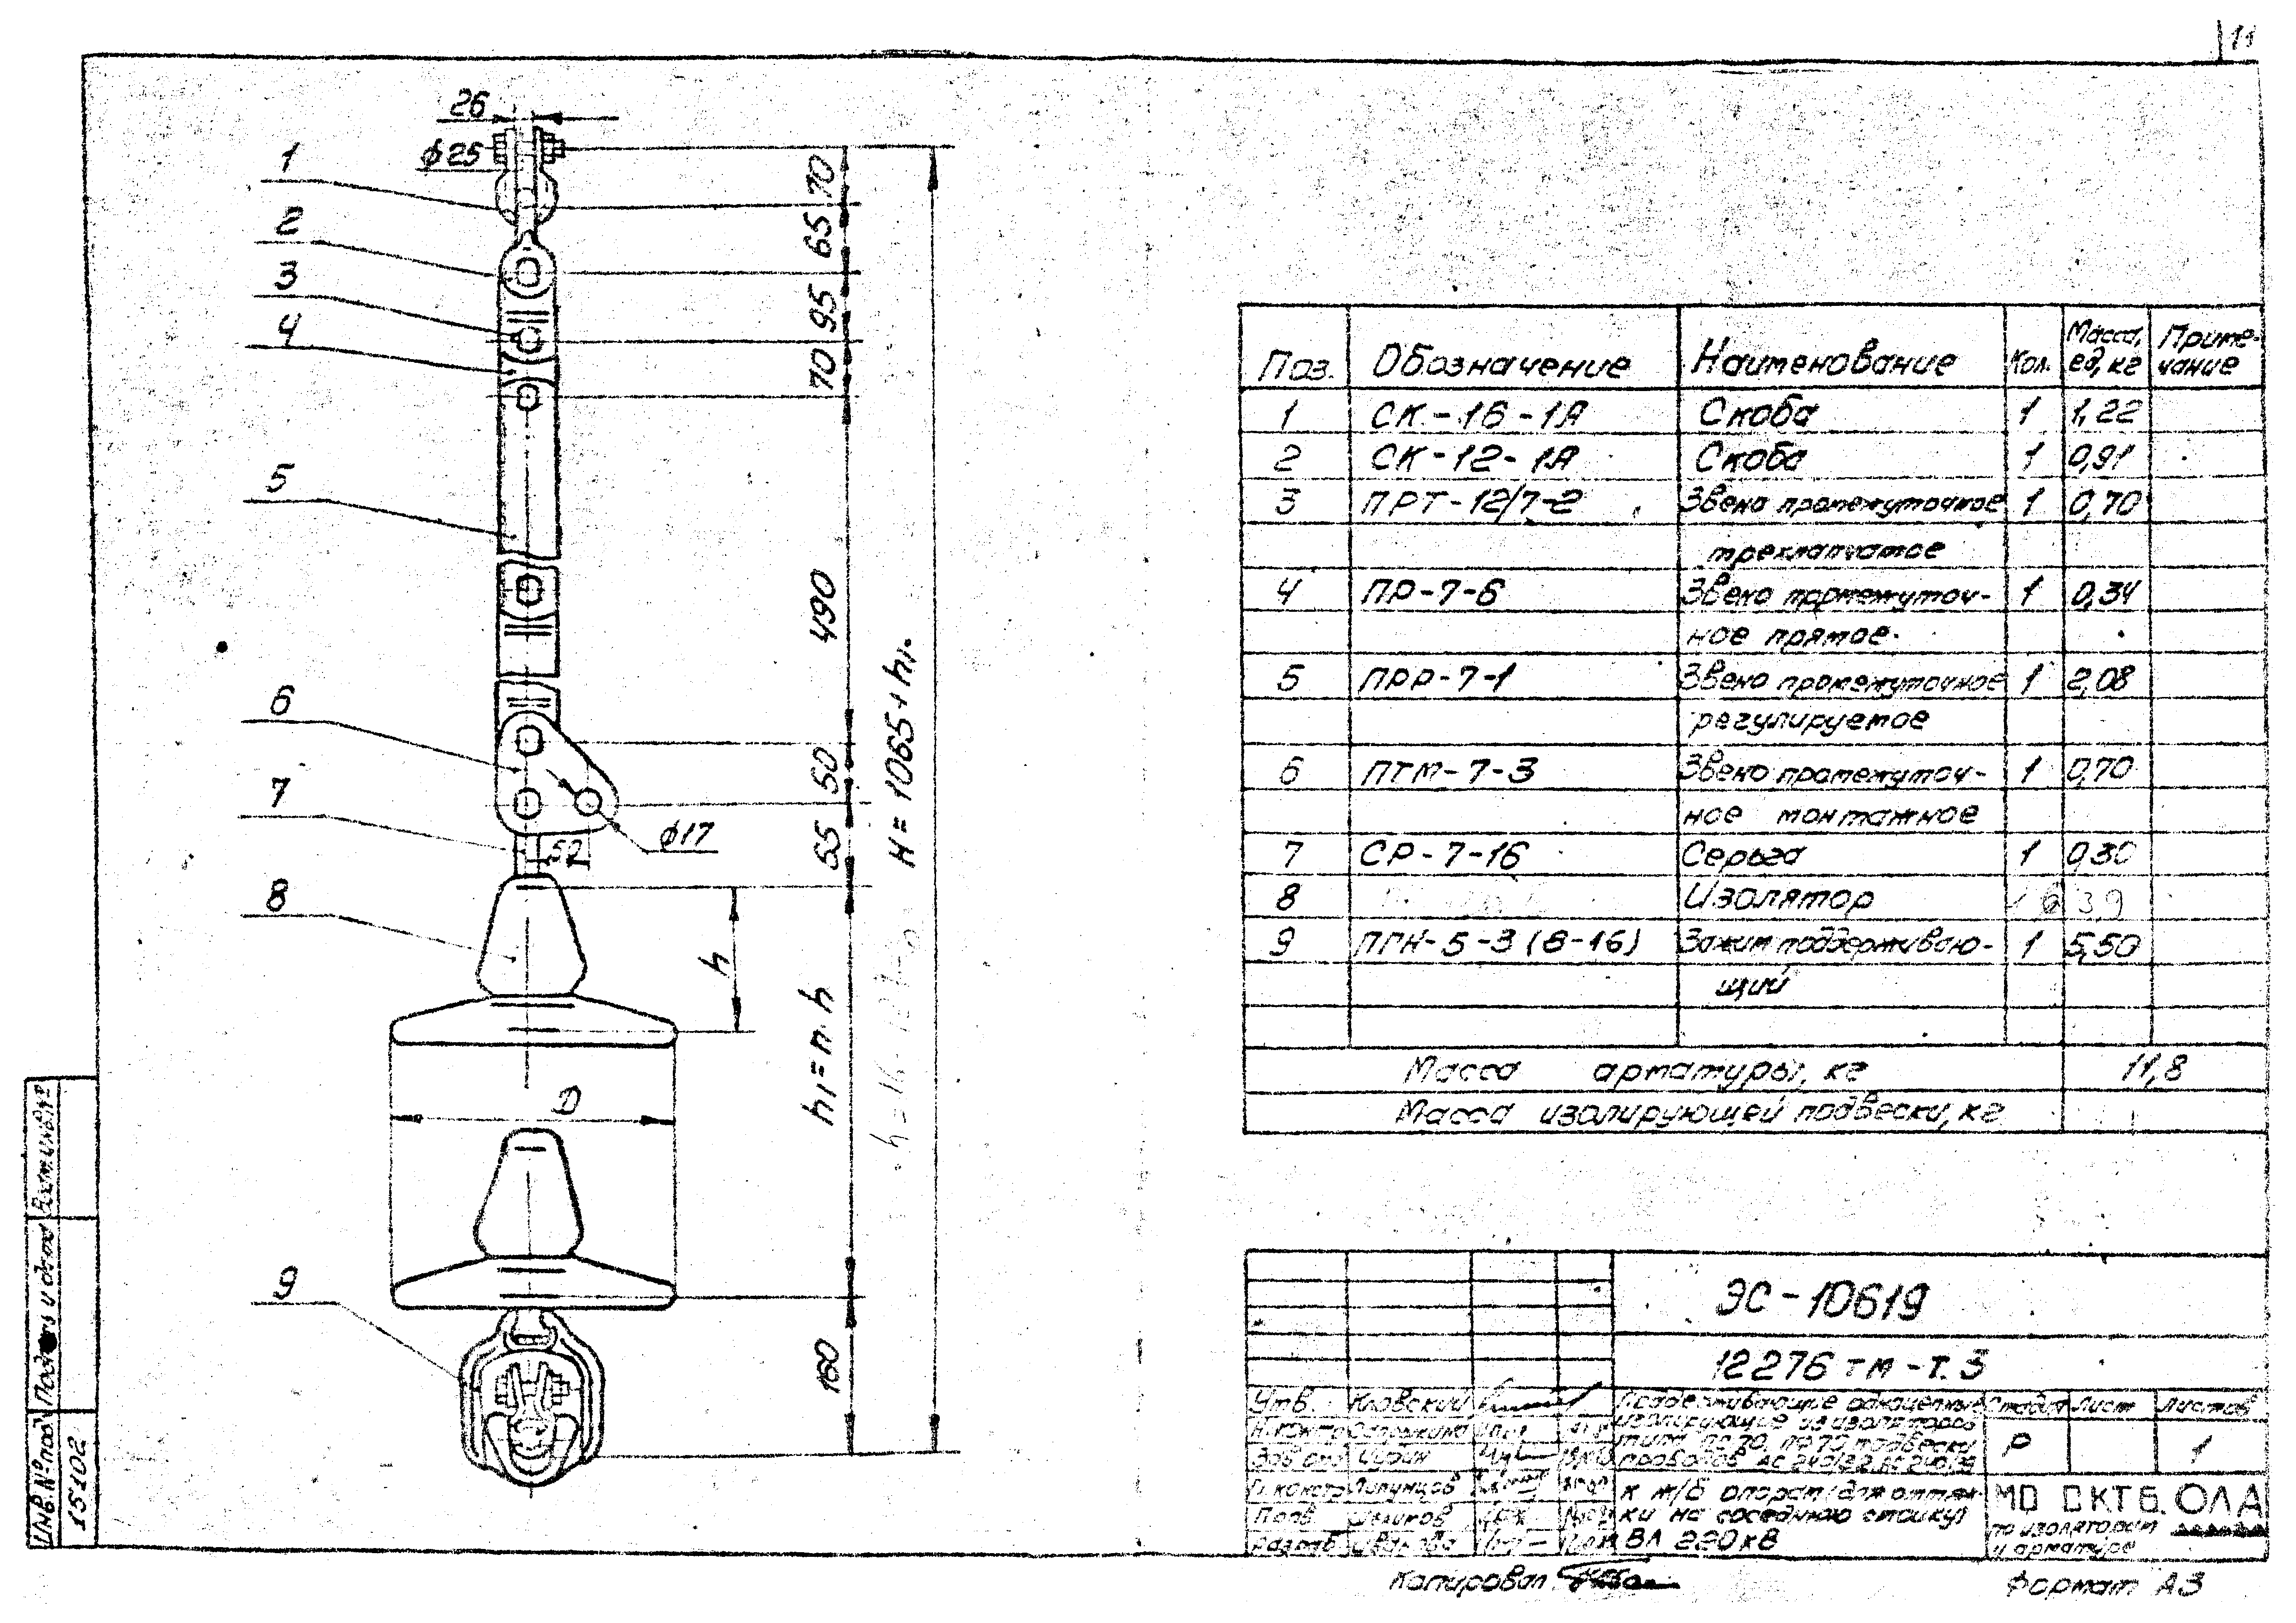 11
26
ф25
1
2
3
4
5
6
7
8
9
70
65
95
70
490
50
55
160
52
ф17
h
D
h1 = n·h
H = 1065 + h1.
Поз. Обозначение Наименование Кол. Масса, ед, кг Приме- чание
1 СК-16-1А Скоба 1 1,22
2 СК-12-1А Скоба 1 0,91
3 ПРТ-12/7-2 Звено промежуточное 1 0,70
трехлапчатое
4 ПР-7-6 Звено промежуточ- 1 0,34
ное прямое
5 ПРР-7-1 Звено промежуточное 1 2,08
регулируемое
6 ПТМ-7-3 Звено промежуточ- 1 0,70
ное монтажное
7 СР-7-16 Серьга 1 0,30
8 Изолятор 6 3,9
9 ПГН-5-3 (8-16) Зажим поддерживаю- 1 5,50
щий
Масса арматуры, кг 11,8
Масса изолирующей подвески, кг
ЭС-10619
12276 тм-т.3
Утв. Кловский
Н. контр
Зав отд
Гл. констр
Пров.
Разраб. Иванова
Поддерживающие одноцепные
изолирующие из изоляторов
типа ПС70, ПФ70 подвески
проводов АС 240/32, АС 240/39
к ж/б опорам (для оттяж-
ки на соседнюю стойку)
ВЛ 220 кВ
Стадия Лист Листов
Р 1
МО СКТБ. ОЛА
по изоляторам
и арматуре
Копировал
Формат А3
Взам. инв. №
Подпись и дата
Инв. № подл
15102